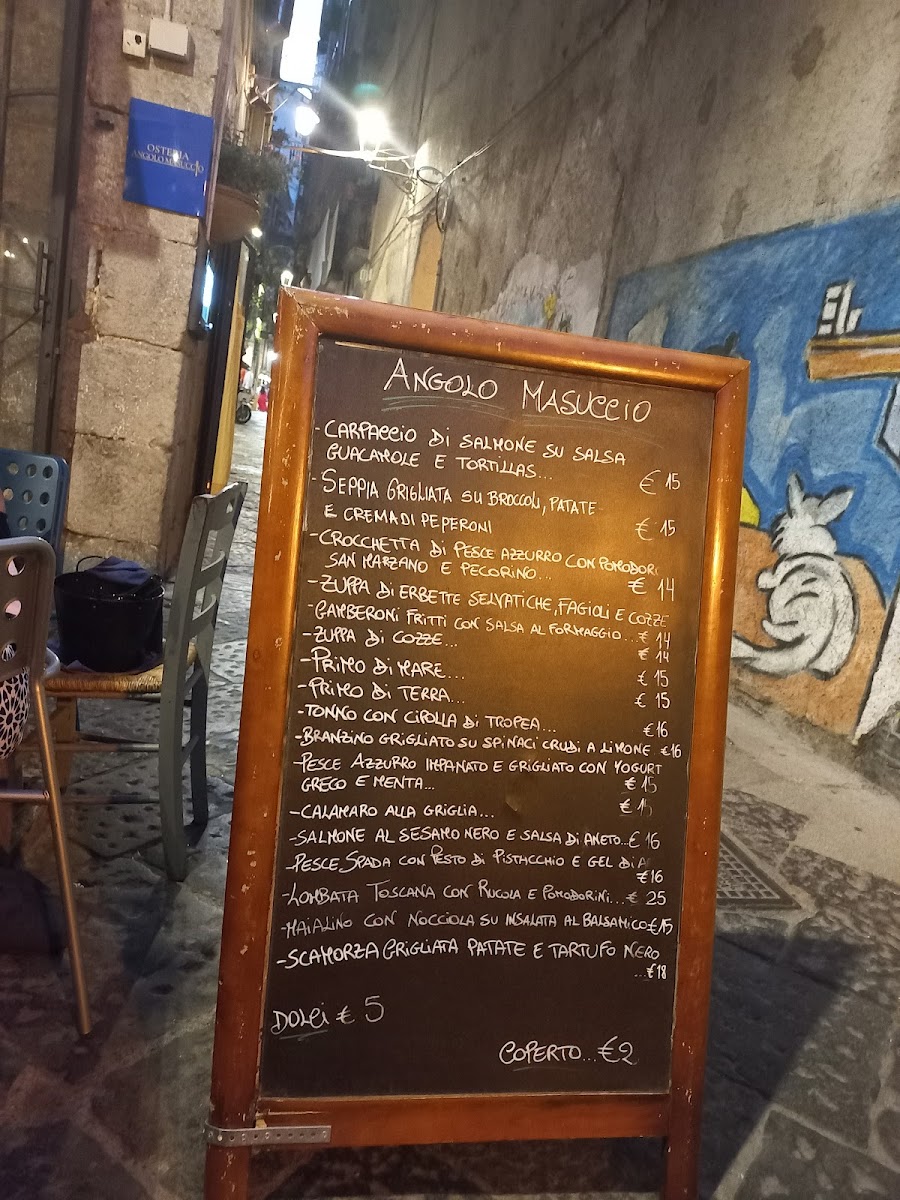 OSTERIA
ANGOLO MASUCCIO
ANGOLO MASUCCIO
-CARPACCIO DI SALMONE SU SALSA
GUACAMOLE E TORTILLAS... € 15
-SEPPIA GRIGLIATA SU BROCCOLI, PATATE
E CREMA DI PEPERONI € 15
-CROCCHETTA DI PESCE AZZURRO CON POMODORI
SAN MARZANO E PECORINO... € 14
-ZUPPA DI ERBETTE SELVATICHE, FAGIOLI E COZZE
-GAMBERONI FRITTI CON SALSA AL FORMAGGIO... € 14
-ZUPPA DI COZZE... € 14
-PRIMO DI MARE... € 15
-PRIMO DI TERRA... € 15
-TONNO CON CIPOLLA DI TROPEA... €16
-BRANZINO GRIGLIATO SU SPINACI CRUDI A LIMONE €16
-PESCE AZZURRO IMPANATO E GRIGLIATO CON YOGURT
GRECO E MENTA... € 15
-CALAMARO ALLA GRIGLIA... € 15
-SALMONE AL SESAMO NERO E SALSA DI ANETO...€ 16
-PESCE SPADA CON PESTO DI PISTACCHIO E GEL DI
€16
-LOMBATA TOSCANA CON RUCOLA E POMODORINI...€ 25
-MAIALINO CON NOCCIOLA SU INSALATA AL BALSAMICO €15
-SCAMORZA GRIGLIATA PATATE E TARTUFO NERO
...€18
DOLCI € 5
COPERTO...€2